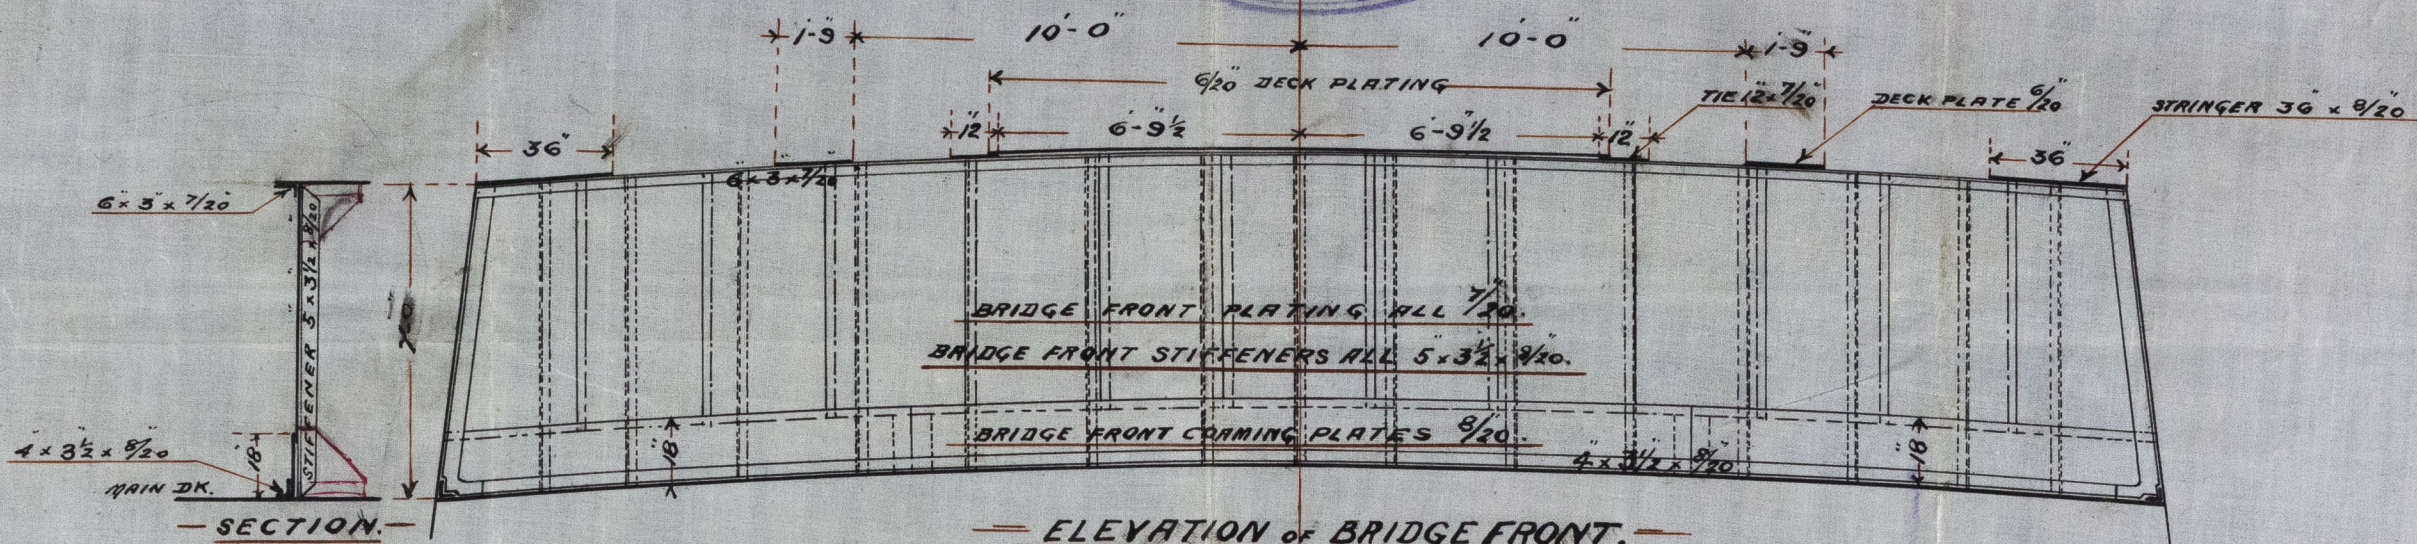 1'-9"
10'-0"
10'-0"
1'-9"
6/20" DECK PLATING
TIE 12" x 7/20"
DECK PLATE 6/20"
STRINGER 36" x 8/20"
36"
12"
6'-9 1/2"
6'-9 1/2"
12"
36"
6" x 3" x 7/20"
6" x 3" x 7/20"
STIFFENER 5" x 3 1/2" x 8/20"
BRIDGE FRONT PLATING ALL 7/20".
BRIDGE FRONT STIFFENERS ALL 5" x 3 1/2" x 8/20".
BRIDGE FRONT COAMING PLATES 8/20".
4" x 3 1/2" x 8/20"
18"
18"
4" x 3 1/2" x 8/20"
18"
MAIN DK.
SECTION.
ELEVATION OF BRIDGE FRONT.